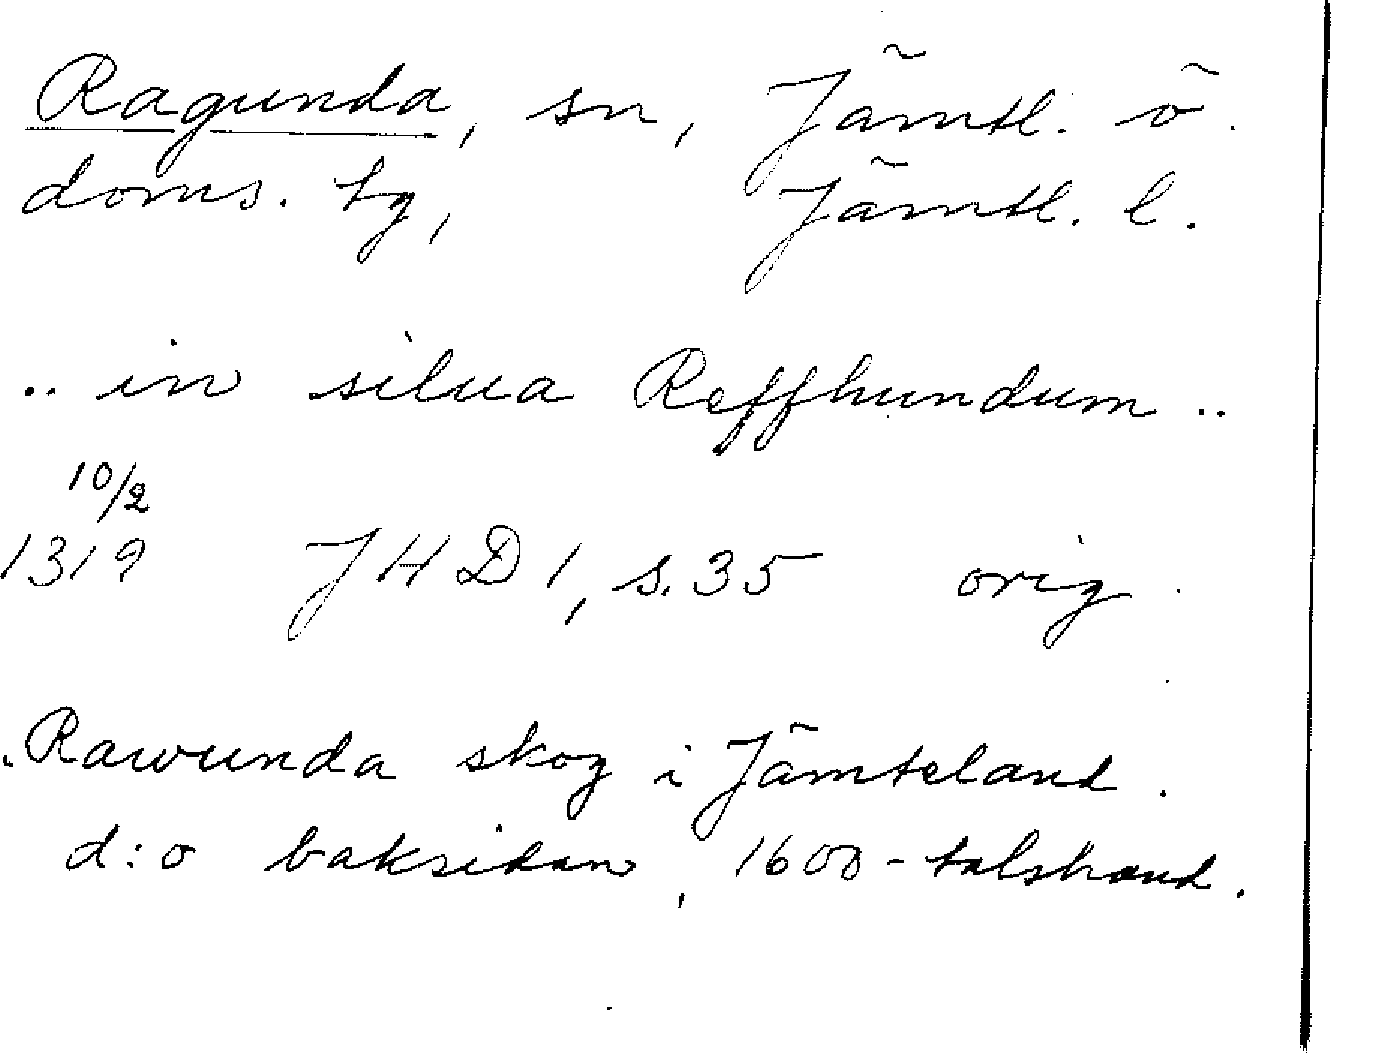 Ragunda, sn, Jämtl. ö.
doms. tg, Jämtl. l.
.. in silua Reffhundum ..
10/2
1319 JHD 1, s. 35 orig.
. Rawunda skog i Jämteland.
d:o baksidan, 1600-talshand.